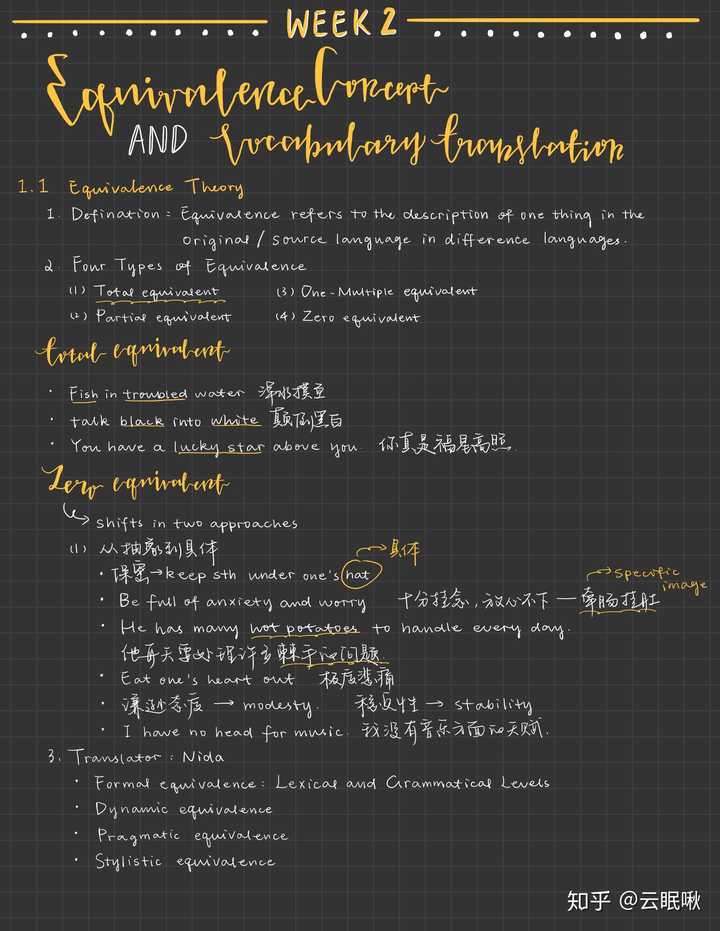 WEEK 2
Equivalence Concept
AND Vocabulary translation
1.1 Equivalence Theory
1. Defination: Equivalence refers to the description of one thing in the
original / source language in difference languages.
2. Four Types of Equivalence
(1) Total equivalent (3) One-Multiple equivalent
(2) Partial equivalent (4) Zero equivalent
total equivalent
· Fish in troubled water 浑水摸鱼
· talk black into white 颠倒黑白
· You have a lucky star above you. 你真是福星高照.
Zero equivalent
shifts in two approaches
(1) 从抽象到具体
→具体
· 保密→keep sth under one's hat
→specific image
· Be full of anxiety and worry 十分挂念，放心不下 — 牵肠挂肚
· He has many hot potatoes to handle every day.
他每天要处理许多棘手的问题.
· Eat one's heart out 极度悲痛
· 谦逊态度 → modesty. 稳定性 → stability
· I have no head for music. 我没有音乐方面的天赋.
3. Translator: Nida
· Formal equivalence: Lexical and Grammatical Levels
· Dynamic equivalence
· Pragmatic equivalence
· Stylistic equivalence
知乎 @云眠啾